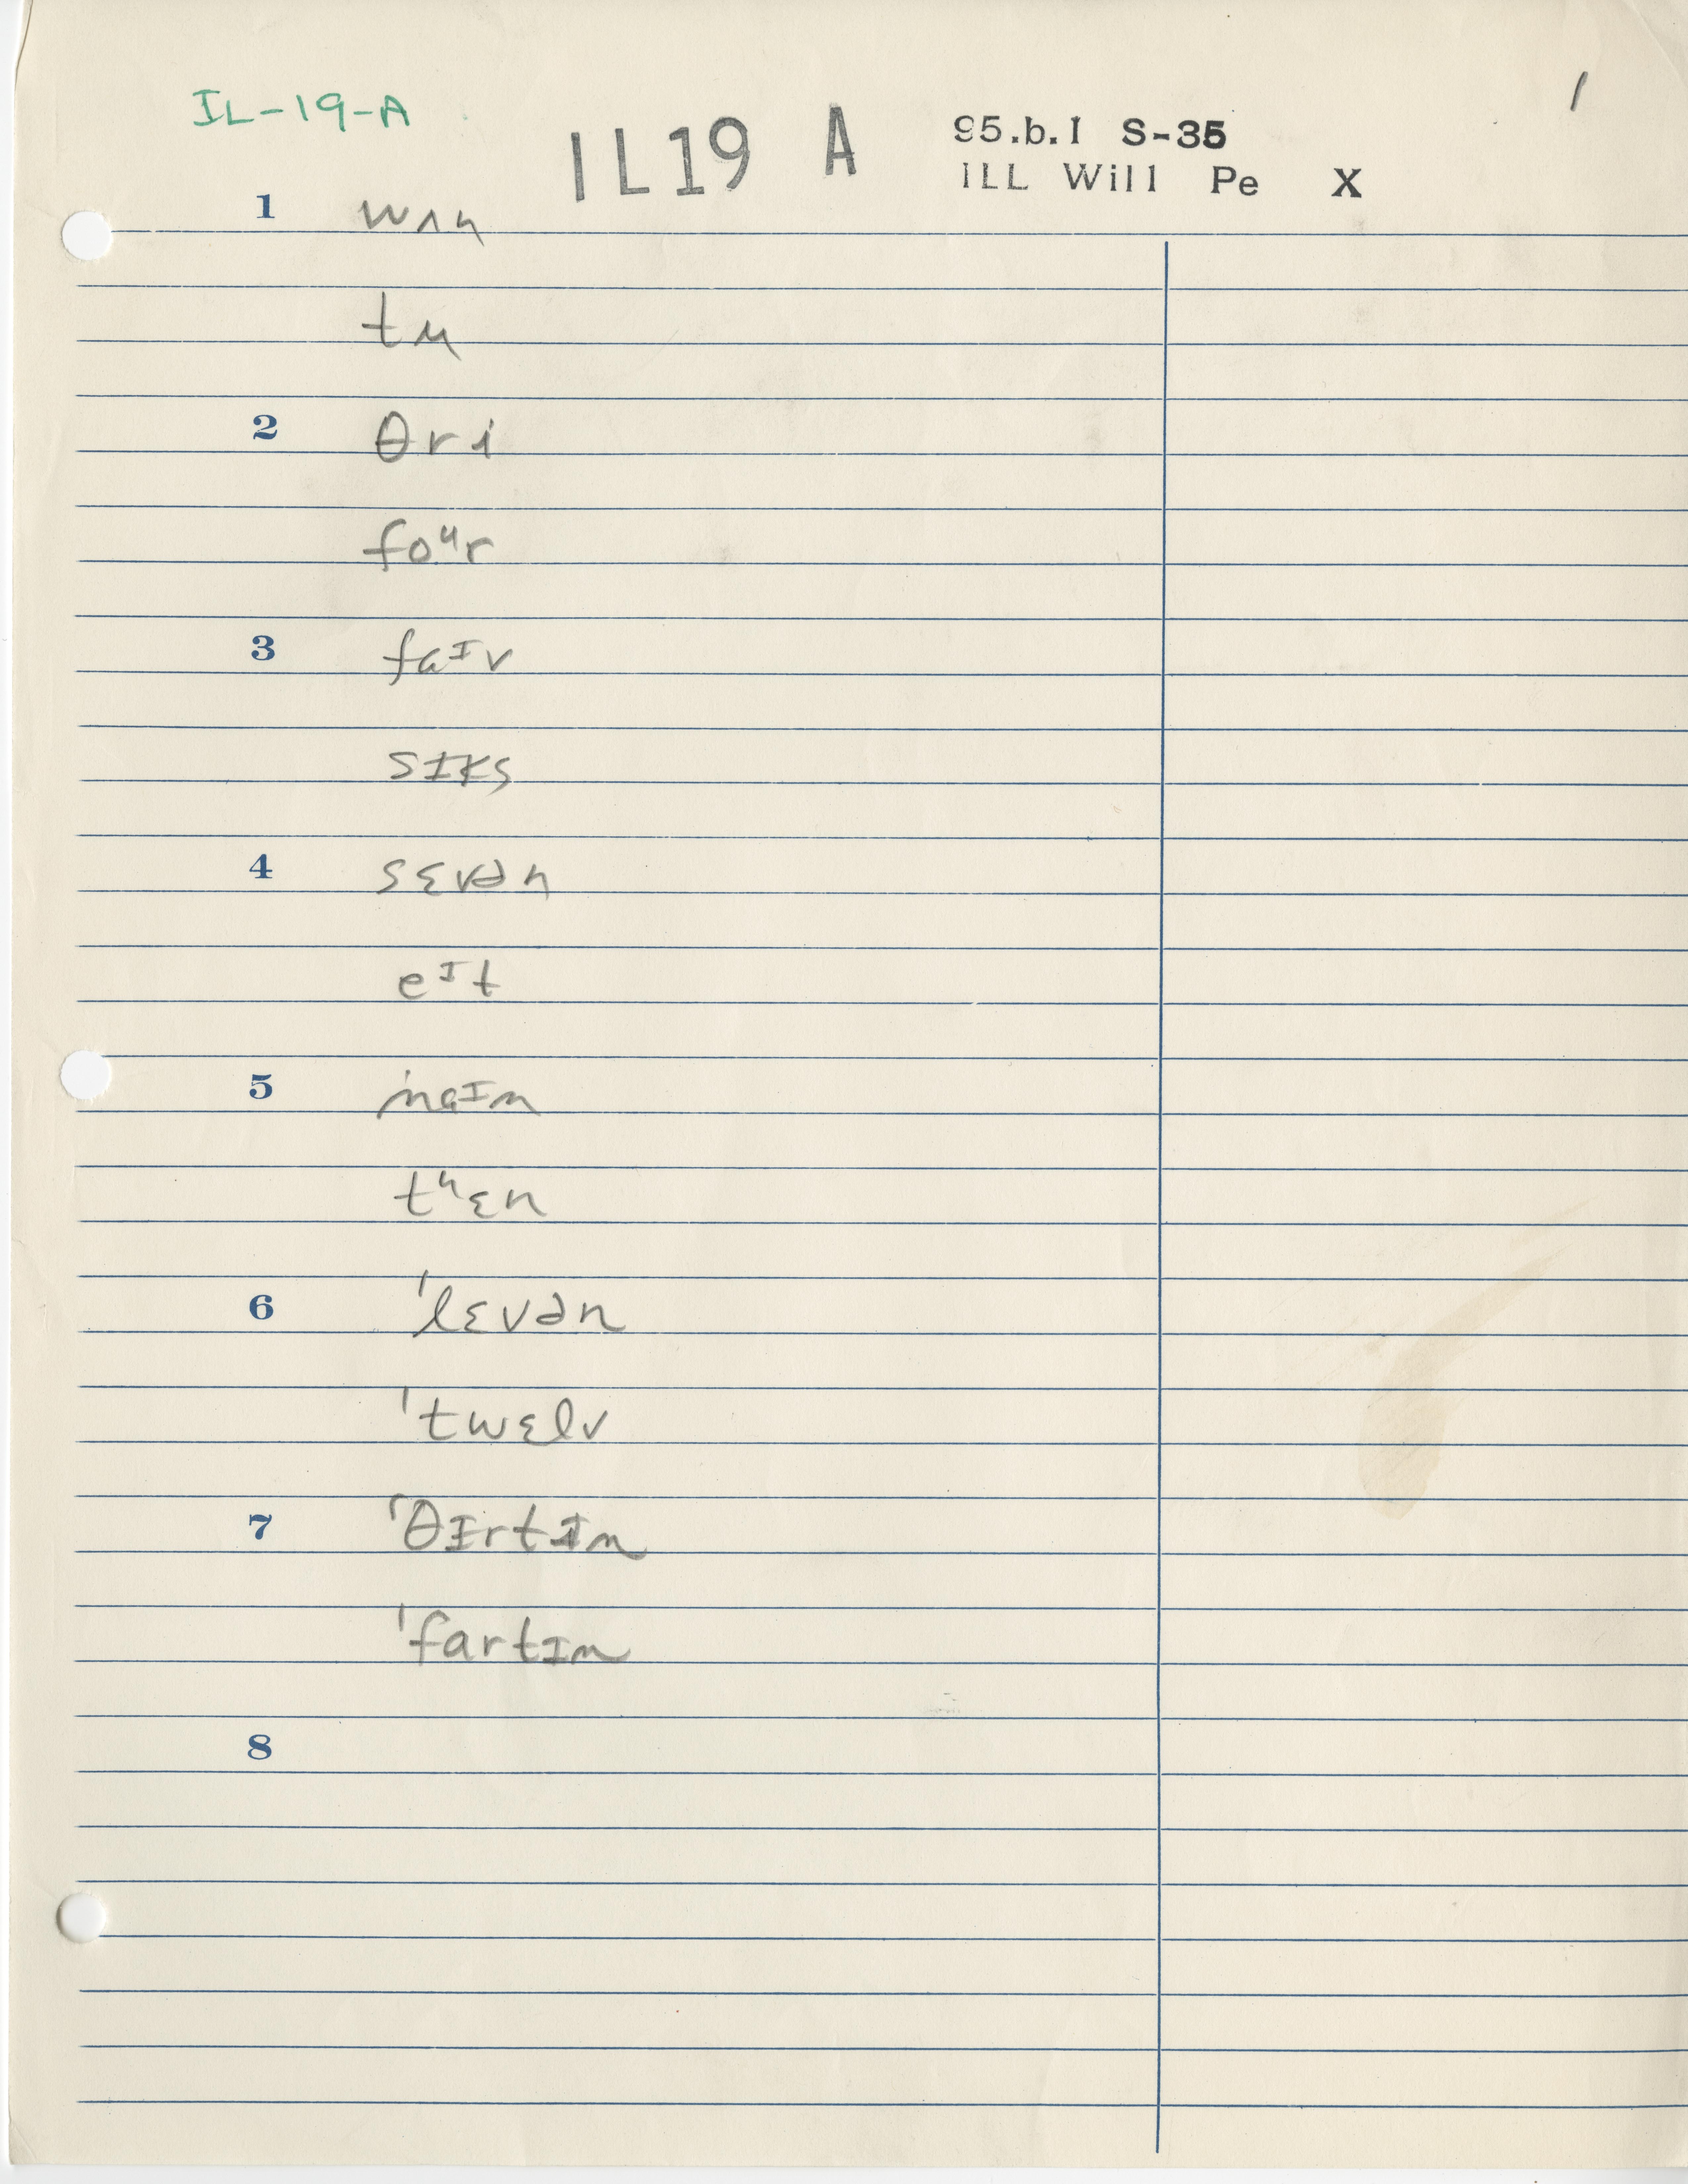 1
IL-19-A
IL19 A
95.b.1 S-35
ILL Will Pe X
1 wʌn
tu
2 θri
foᵘr
3 faᴵv
sɪks
4 sɛvən
eᴵt
5 naᴵn
tʰɛn
6 'lɛvən
'twɛlv
7 'θɪrtɪn
'fartɪn
8